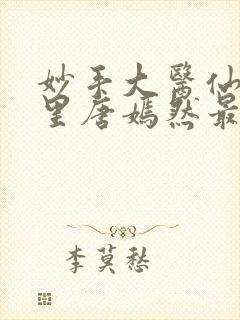 妙手大醫仙
里唐嫣然最
李莫愁